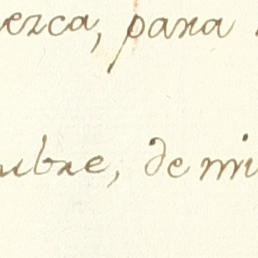 ezca, para
ubre, de mi